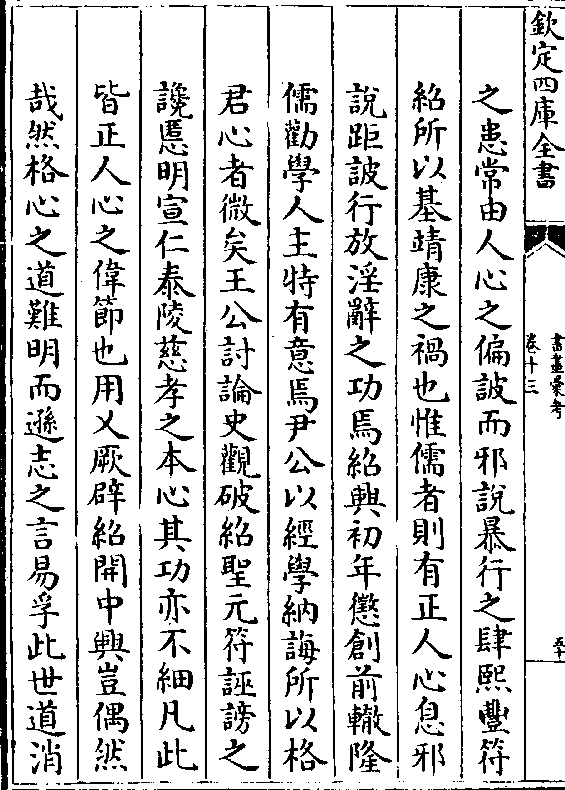 欽定四庫全書
書畫彙考
卷十三
之患常由人心之偏詖而邪說暴行之肆熙豐符
紹所以基靖康之禍也惟儒者則有正人心息邪
說距詖行放淫辭之功焉紹興初年懲創前轍隆
儒勸學人主特有意焉尹公以經學納誨所以格
君心者微矣王公討論史觀破紹聖元符誣謗之
讒慝明宣仁泰陵慈孝之本心其功亦不細凡此
皆正人心之偉節也用乂厥辟紹開中興豈偶然
哉然格心之道難明而遜志之言易孚此世道消